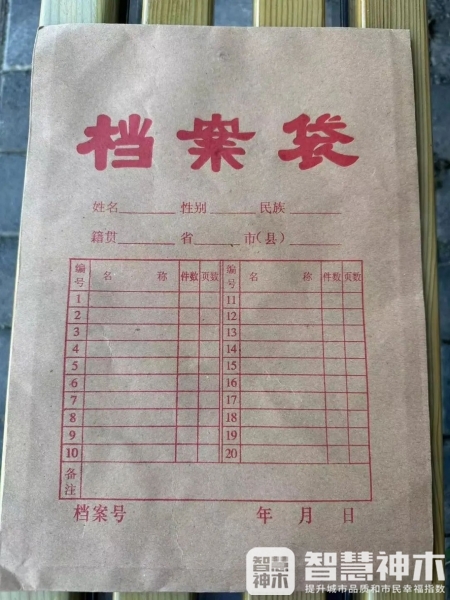 档案袋
姓名______ 性别______ 民族______
籍贯______省______市(县)______
编号 名 称 件数 页数 编号 名 称 件数 页数
1 11
2 12
3 13
4 14
5 15
6 16
7 17
8 18
9 19
10 20
备注
档案号 年 月 日
智慧神木 智慧神木
提升城市品质和市民幸福指数